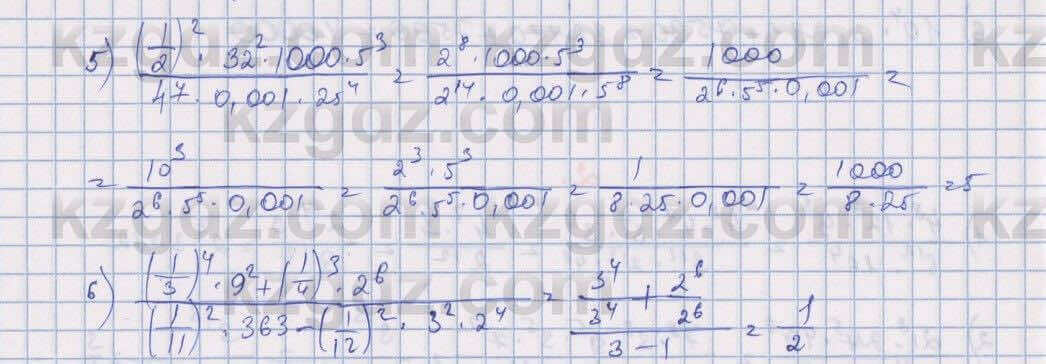 5) ((1/2)² · 32² · 1000 · 5³)/(4⁷ · 0,001 · 25⁴) = (2⁸ · 1000 · 5³)/(2¹⁴ · 0,001 · 5⁸) = 1000/(2⁶ · 5⁵ · 0,001) =
= 10³/(2⁶ · 5⁵ · 0,001) = (2³ · 5³)/(2⁶ · 5⁵ · 0,001) = 1/(8 · 25 · 0,001) = 1000/(8 · 25) = 5
6) ((1/3)⁴ · 9² + (1/4)³ · 2⁶)/((1/11)² · 363 − (1/12)² · 3² · 2⁴) = (3⁴/3⁴ + 2⁶/2⁶)/(3 − 1) = 1/2
kzgdz.com